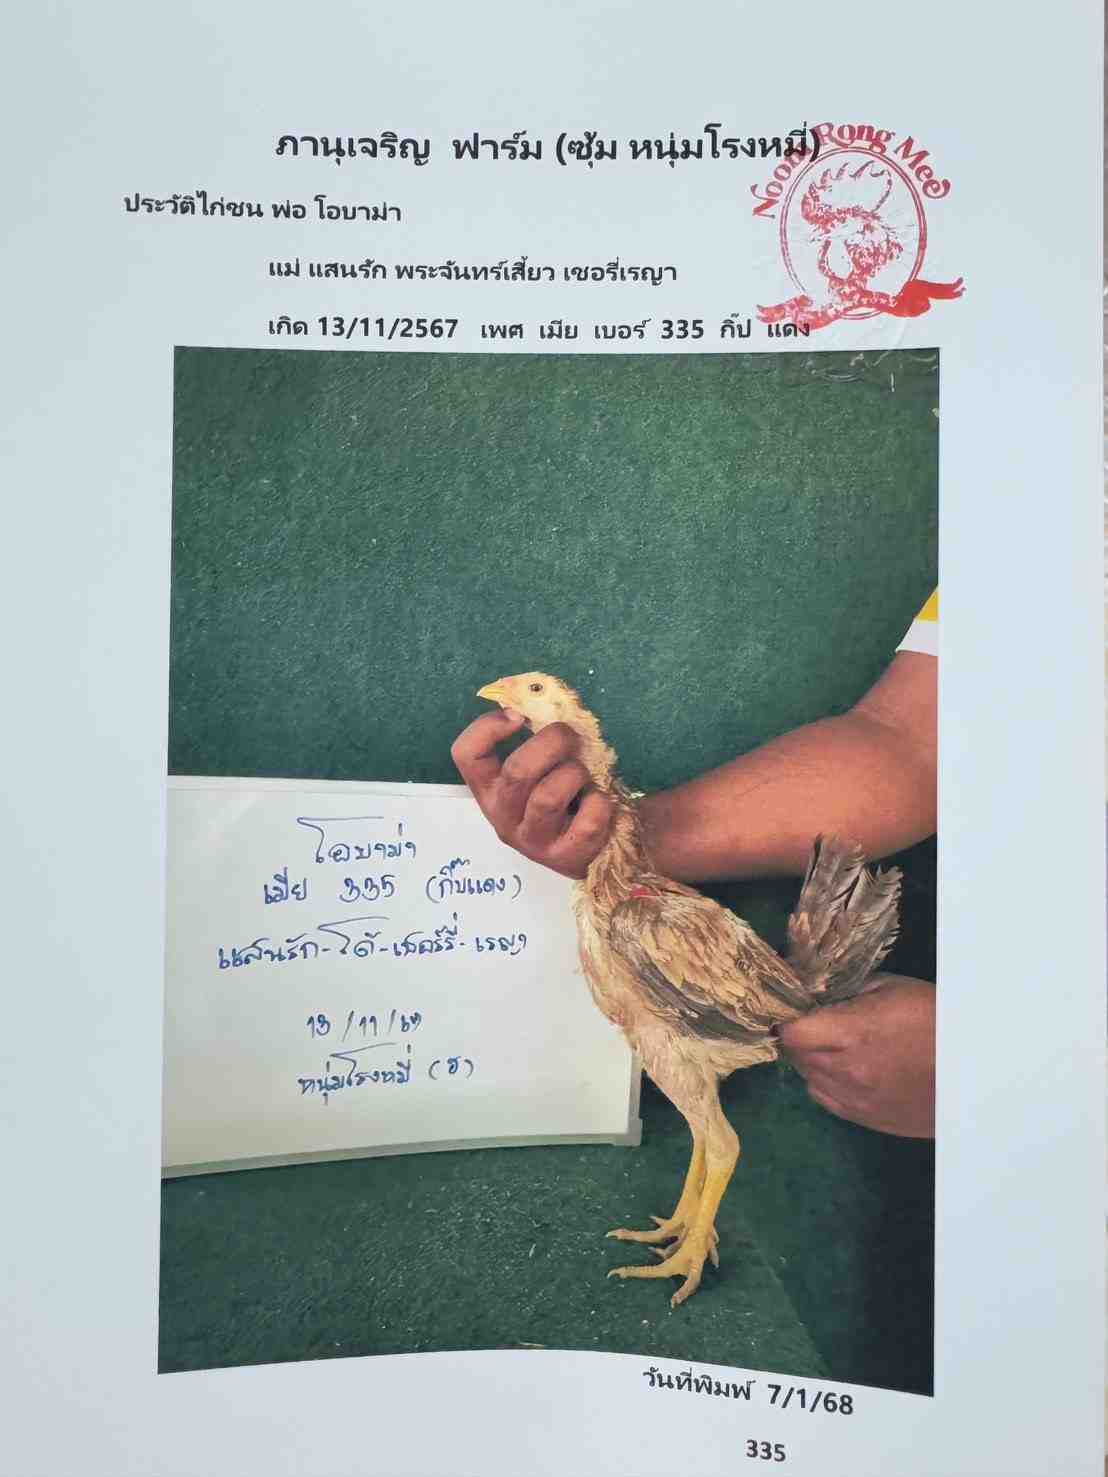 ภานุเจริญ ฟาร์ม (ซุ้ม หนุ่มโรงหมี่)
Noom Rong Mee
ประวัติไก่ชน พ่อ โอบาม่า
แม่ แสนรัก พระจันทร์เสี้ยว เชอรี่เรญา
เกิด 13/11/2567 เพศ เมีย เบอร์ 335 กิ๊ป แดง
โอบาม่า
เมีย 335 (กิ๊บแดง)
แสนรัก-โต้-เชอร์รี่-เรญา
13/11/67
หนุ่มโรงหมี่ (ฮ)
วันที่พิมพ์ 7/1/68
335